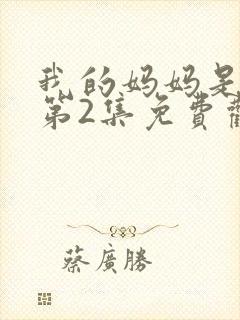 我的妈妈是
第2集免費
蔡廣勝